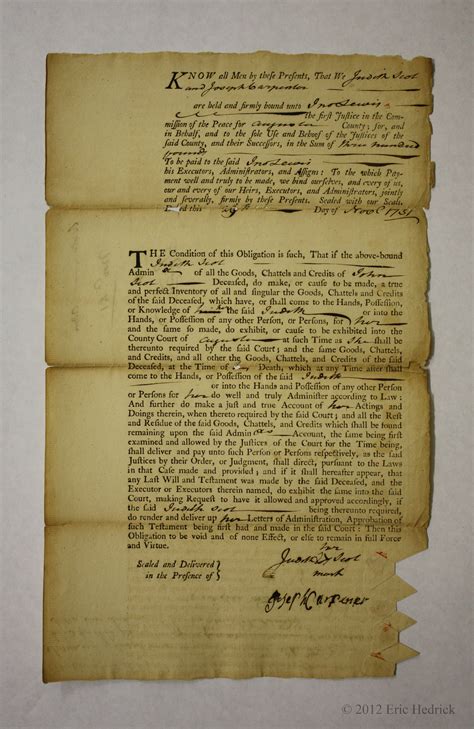 KNOW all Men by these Presents, That We Judith Scot
and Joseph Carpenter
are held and firmly bound unto Jno Lewis
the first Justice in the Com-
mission of the Peace for Augusta County; for, and
in Behalf, and to the sole Use and Behoof of the Justices of the
said County, and their Successors, in the Sum of three hundred
pound
To be paid to the said Jno Lewis
his Executors, Administrators, and Assigns: To the which Pay-
ment well and truly to be made, we bind ourselves, and every of us,
our and every of our Heirs, Executors, and Administrators, jointly
and severally, firmly by these Presents. Sealed with our Seals.
this Day of 1751
THE Condition of this Obligation is such, That if the above-bound
Judith Scot
Admin of all the Goods, Chattels and Credits of John
Scot Deceased, do make, or cause to be made, a true
and perfect Inventory of all and singular the Goods, Chattels and Credits
of the said Deceased, which have, or shall come to the Hands, Possession,
or Knowledge of the said Judith or into the
Hands, or Possession of any other Person, or Persons, for her
and the same so made, do exhibit, or cause to be exhibited into the
County Court of Augusta at such Time as she shall be
thereunto required by the said Court; and the same Goods, Chattels
and Credits, and all other the Goods, Chattels, and Credits of the said
Deceased, at the Time of Death, which at any Time after shall
come to the Hands, or Possession of the said Judith
or into the Hands and Possession of any other Person
or Persons for her do well and truly Administer according to Law:
And further do make a just and true Account of her Actings and
Doings therein, when thereto required by the said Court; and all the Rest
and Residue of the said Goods, Chattels, and Credits which shall be found
remaining upon the said Admin Account, the same being first
examined and allowed by the Justices of the Court for the Time being,
shall deliver and pay unto such Person or Persons respectively, as the said
Justices by their Order, or Judgment, shall direct, pursuant to the Laws
in that Case made and provided; and if it shall hereafter appear, that
any Last Will and Testament was made by the said Deceased, and the
Executor or Executors therein named, do exhibit the same into the said
Court, making Request to have it allowed and approved accordingly, if
the said Judith Scot being thereunto required,
do render and deliver up her Letters of Administration, Approbation of
such Testament being first had and made in the said Court: Then this
Obligation to be void and of none Effect, or else to remain in full Force
and Virtue.
Sealed and Delivered
in the Presence of
her
Judith Scot
mark
Josef Carpener
© 2012 Eric Hedrick